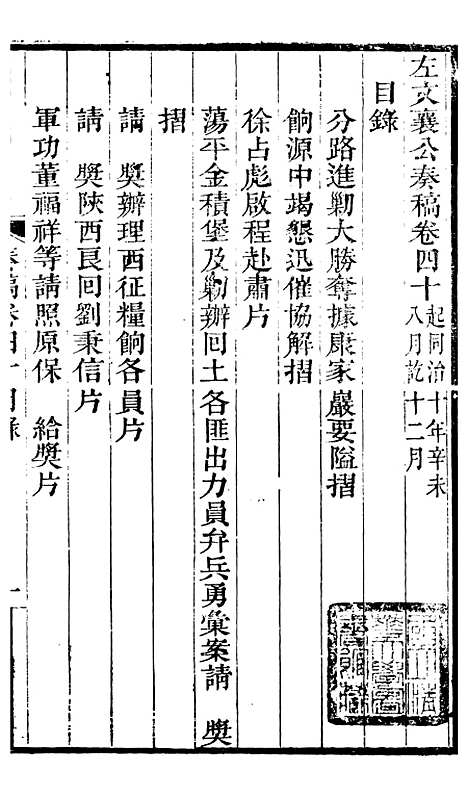 左文襄公奏稿卷四十 起同治十年辛未八月訖十二月
目錄
分路進勦大勝奪據康家巖要隘摺
餉源中竭懇迅催協解摺
徐占彪啟程赴肅片
蕩平金積堡及勦辦回土各匪出力員弁兵勇彙案請 奬
摺
請 奬辦理西征糧餉各員片
請 奬陝西良回劉秉信片
軍功董福祥等請照原保 給奬片
奏稿卷四十目錄 一